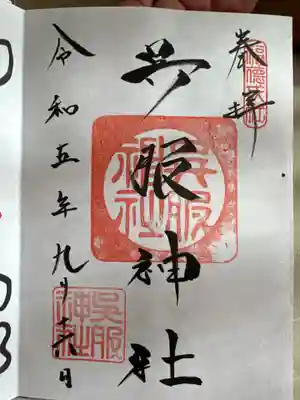 奉拝
呉服神社
呉服神社
令和五年九月十六日
呉服神社